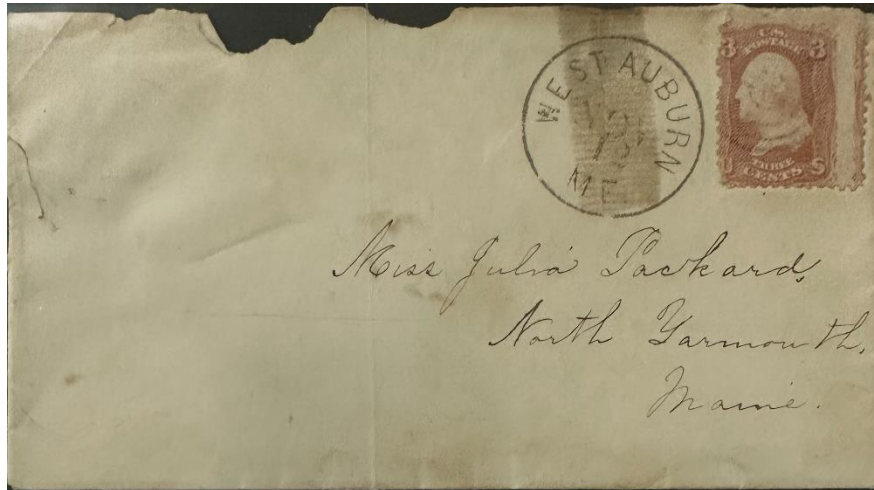 WEST AUBURN
ME
U.S. POSTAGE
3 3
THREE CENTS
U S
Miss Julia Packard,
North Yarmouth,
Maine.